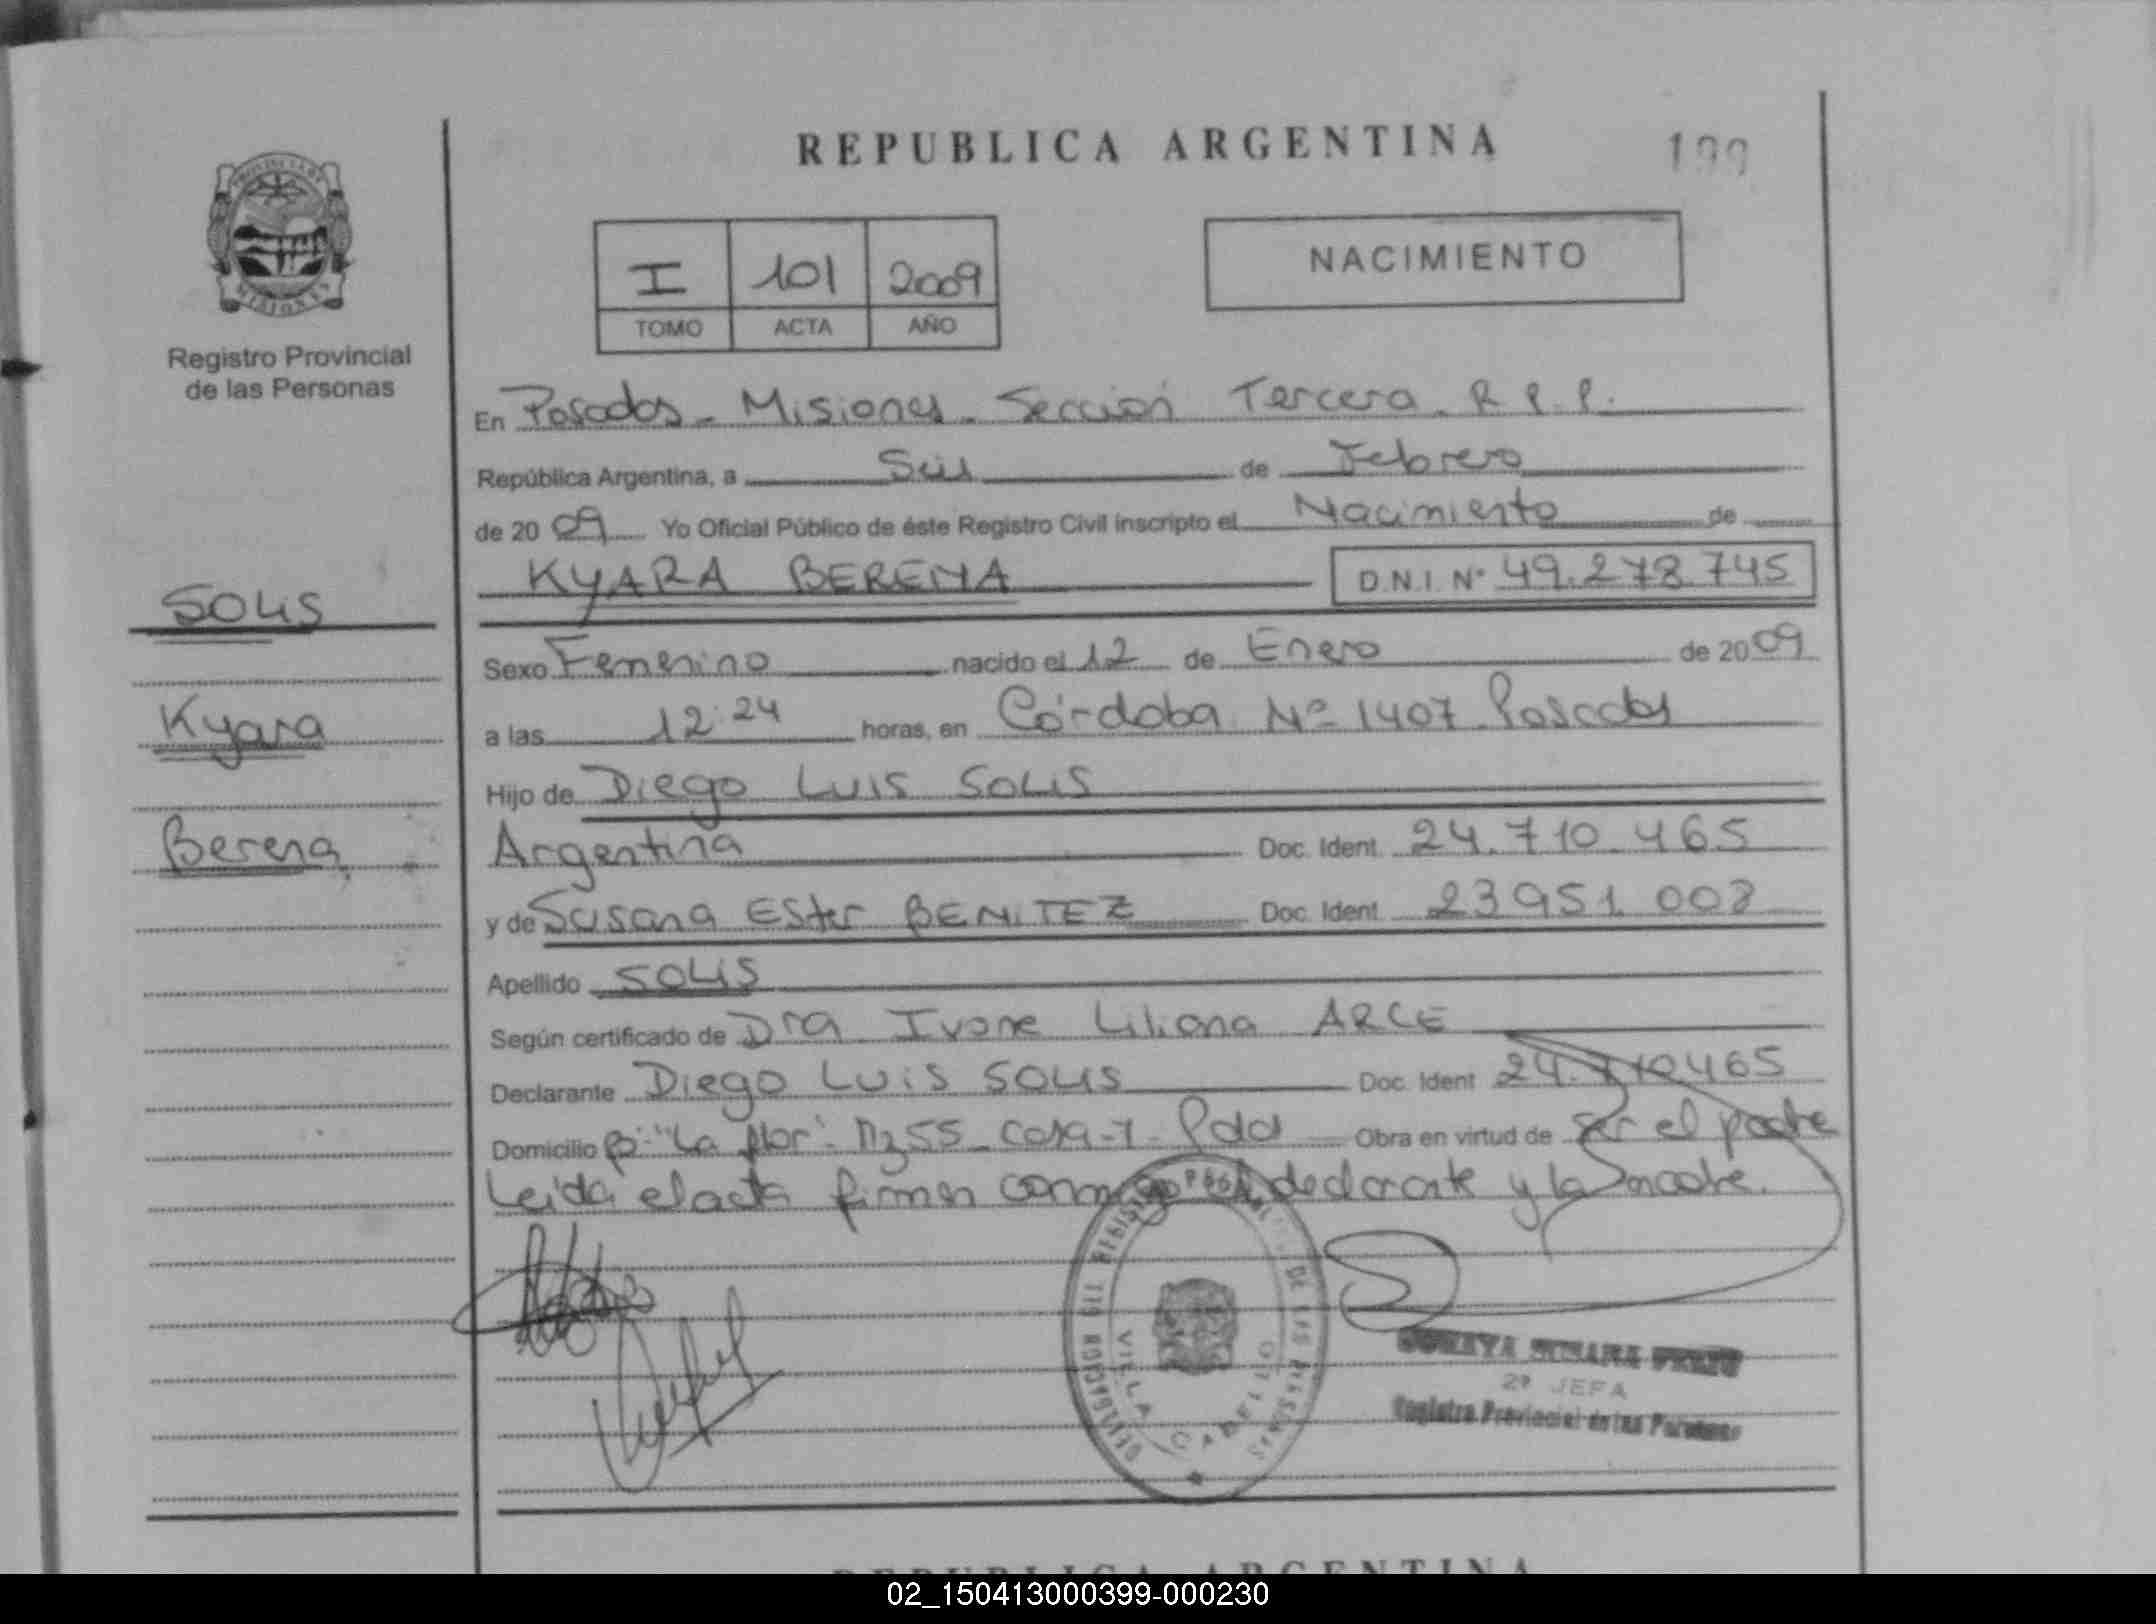 REPUBLICA ARGENTINA
199
PROVINCIA DE
MISIONES
Registro Provincial
de las Personas
I 101 2009
TOMO ACTA AÑO
NACIMIENTO
En Posadas - Misiones - Sección Tercera. R.P.P.
República Argentina, a Seis de Febrero
de 20 09 Yo Oficial Público de éste Registro Civil inscripto el Nacimiento de
KYARA BERENA D.N.I. Nº 49.278.745
SOLIS
Kyara
Berena
Sexo Femenino nacido el 12 de Enero de 20 09
a las 12:24 horas, en Córdoba Nº 1407 Posadas
Hijo de Diego Luis SOLIS
Argentina Doc. Ident. 24.710.465
y de Susana Ester BENITEZ Doc. Ident. 23951.008
Apellido SOLIS
Según certificado de Dra Ivone Liliana ARCE
Declarante Diego Luis SOLIS Doc. Ident 24.710465
Domicilio Bº "La flor" Mz55 - Casa-7 - Pdas Obra en virtud de ser el padre
Leida el acta firman conmigo el declarante y la madre.
REGISTRO DE LAS PERSONAS
VILLA CABELLO
2ª JEFA
Registro Provincial de las Personas
REPUBLICA ARGENTINA
02_150413000399-000230